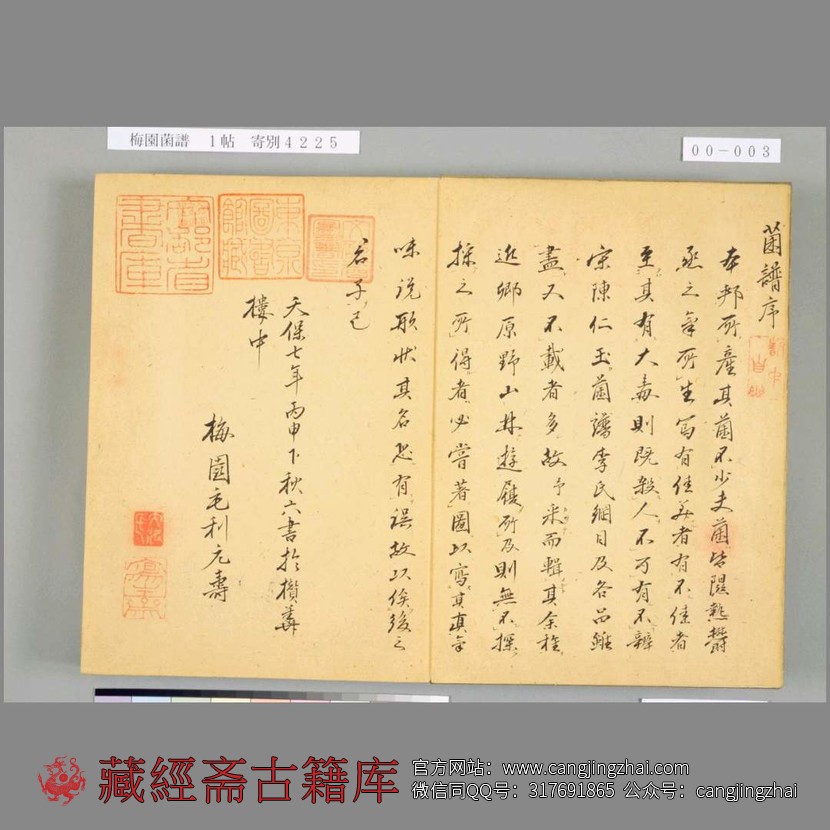 梅園菌譜 1帖 寄別4225
00-003
菌譜序
本邦所產其菌不少夫菌皆濕熱鬱
蒸之氣所生焉有佳美者有不佳者
至其有大毒則既殺人不可有不辨
宋陳仁玉菌譜李氏綱目及各品雖
盡又不載者多故予采而輯其余種
近鄉原野山林遊履所及則無不探
採之所得者必嘗著圖以寫其真氣
味說形狀其名恐有誤故以俟後之
君子已
天保七年丙申下秋六書於攢華
樓中
梅園毛利元壽
東京圖書館藏
藏經斋古籍库
官方网站：www.cangjingzhai.com
微信同QQ号：317691865 公众号：cangjingzhai